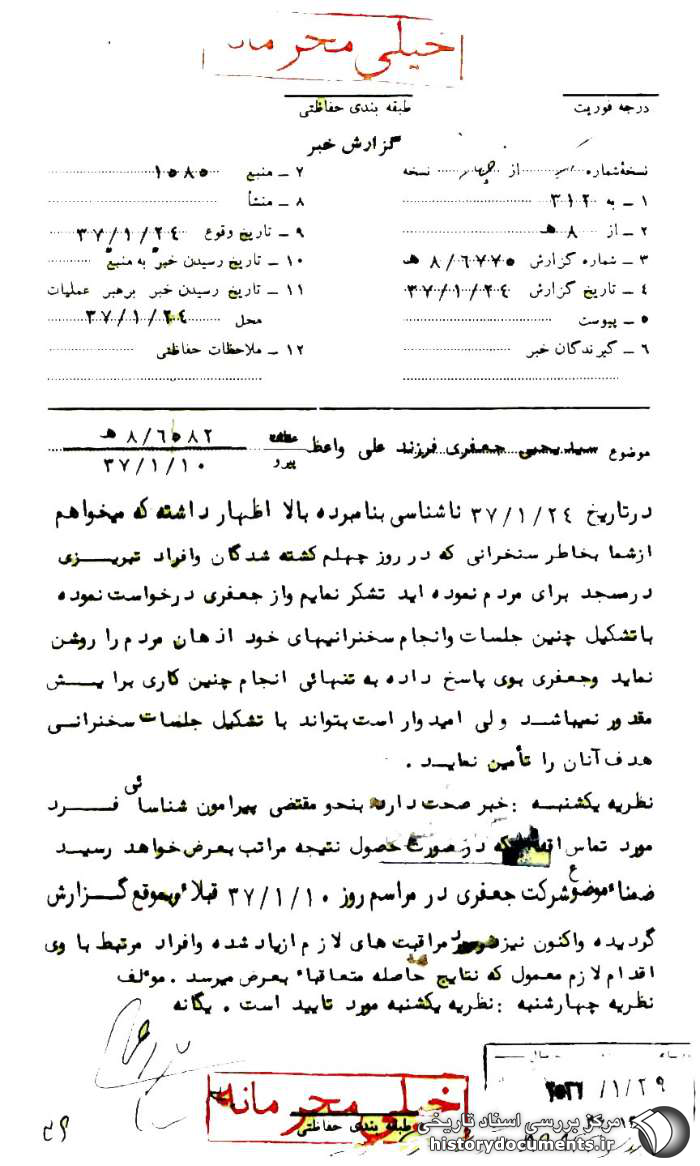 خیلی محرمانه
درجه فوریت
طبقه بندی حفاظتی
گزارش خبر
نسخهٔ شماره از چهار نسخه
۱ ـ به ۳۱۲
۲ ـ از ۸ هـ
۳ ـ شماره گزارش ۸/۶۷۷۵ هـ
۴ ـ تاریخ گزارش ۳۷/۱/۲۴
۵ ـ پیوست
۶ ـ گیرندگان خبر
۷ ـ منبع ۱۵۸۵
۸ ـ منشأ
۹ ـ تاریخ وقوع ۳۷/۱/۲۴
۱۰ ـ تاریخ رسیدن خبر به منبع
۱۱ ـ تاریخ رسیدن خبر برهبر عملیات
محل ۳۷/۱/۲۴
۱۲ ـ ملاحظات حفاظتی
موضوع سیدیحیی جعفری فرزند علی واعظ
پیرو ۸/۶۵۸۲ هـ
۳۷/۱/۱۰
درتاریخ ۳۷/۱/۲۴ ناشناسی بنامبرده بالا اظهار داشته که میخواهم
ازشما بخاطر سنخرانی که در روز چهلم کشته شدگان وافراد تبریزی
درمسجد برای مردم نموده اید تشکر نمایم واز جعفری درخواست نموده
باتشکیل چنین جلسات وانجام سخنرانیهای خود اذهان مردم را روشن
نماید وجعفری بوی پاسخ داده به تنهائی انجام چنین کاری برایش
مقدور نمیباشد ولی امیدوار است بتواند با تشکیل جلسات سخنرانی
هدف آنان را تأمین نماید .
نظریه یکشنبه : خبر صحت دارد بنحو مقتضی پیرامون شناسائی فرد
مورد تماس که در صورت حصول نتیجه مراتب بعرض خواهد رسید
ضمناً موضوع شرکت جعفری در مراسم روز ۳۷/۱/۱۰ قبلاً بموقع گزارش
گردیده واکنون نیز مراقبت های لازم ازیاد شده وافراد مرتبط با وی
اقدام لازم معمول که نتایج حاصله متعاقباً بعرض میرسد . موءلف
نظریه چهارشنبه : نظریه یکشنبه مورد تایید است . یگانه
۱/۲۹
خیلی محرمانه
طبقه بندی حفاظتی
مرکز بررسی اسناد تاریخی
historydocuments.ir